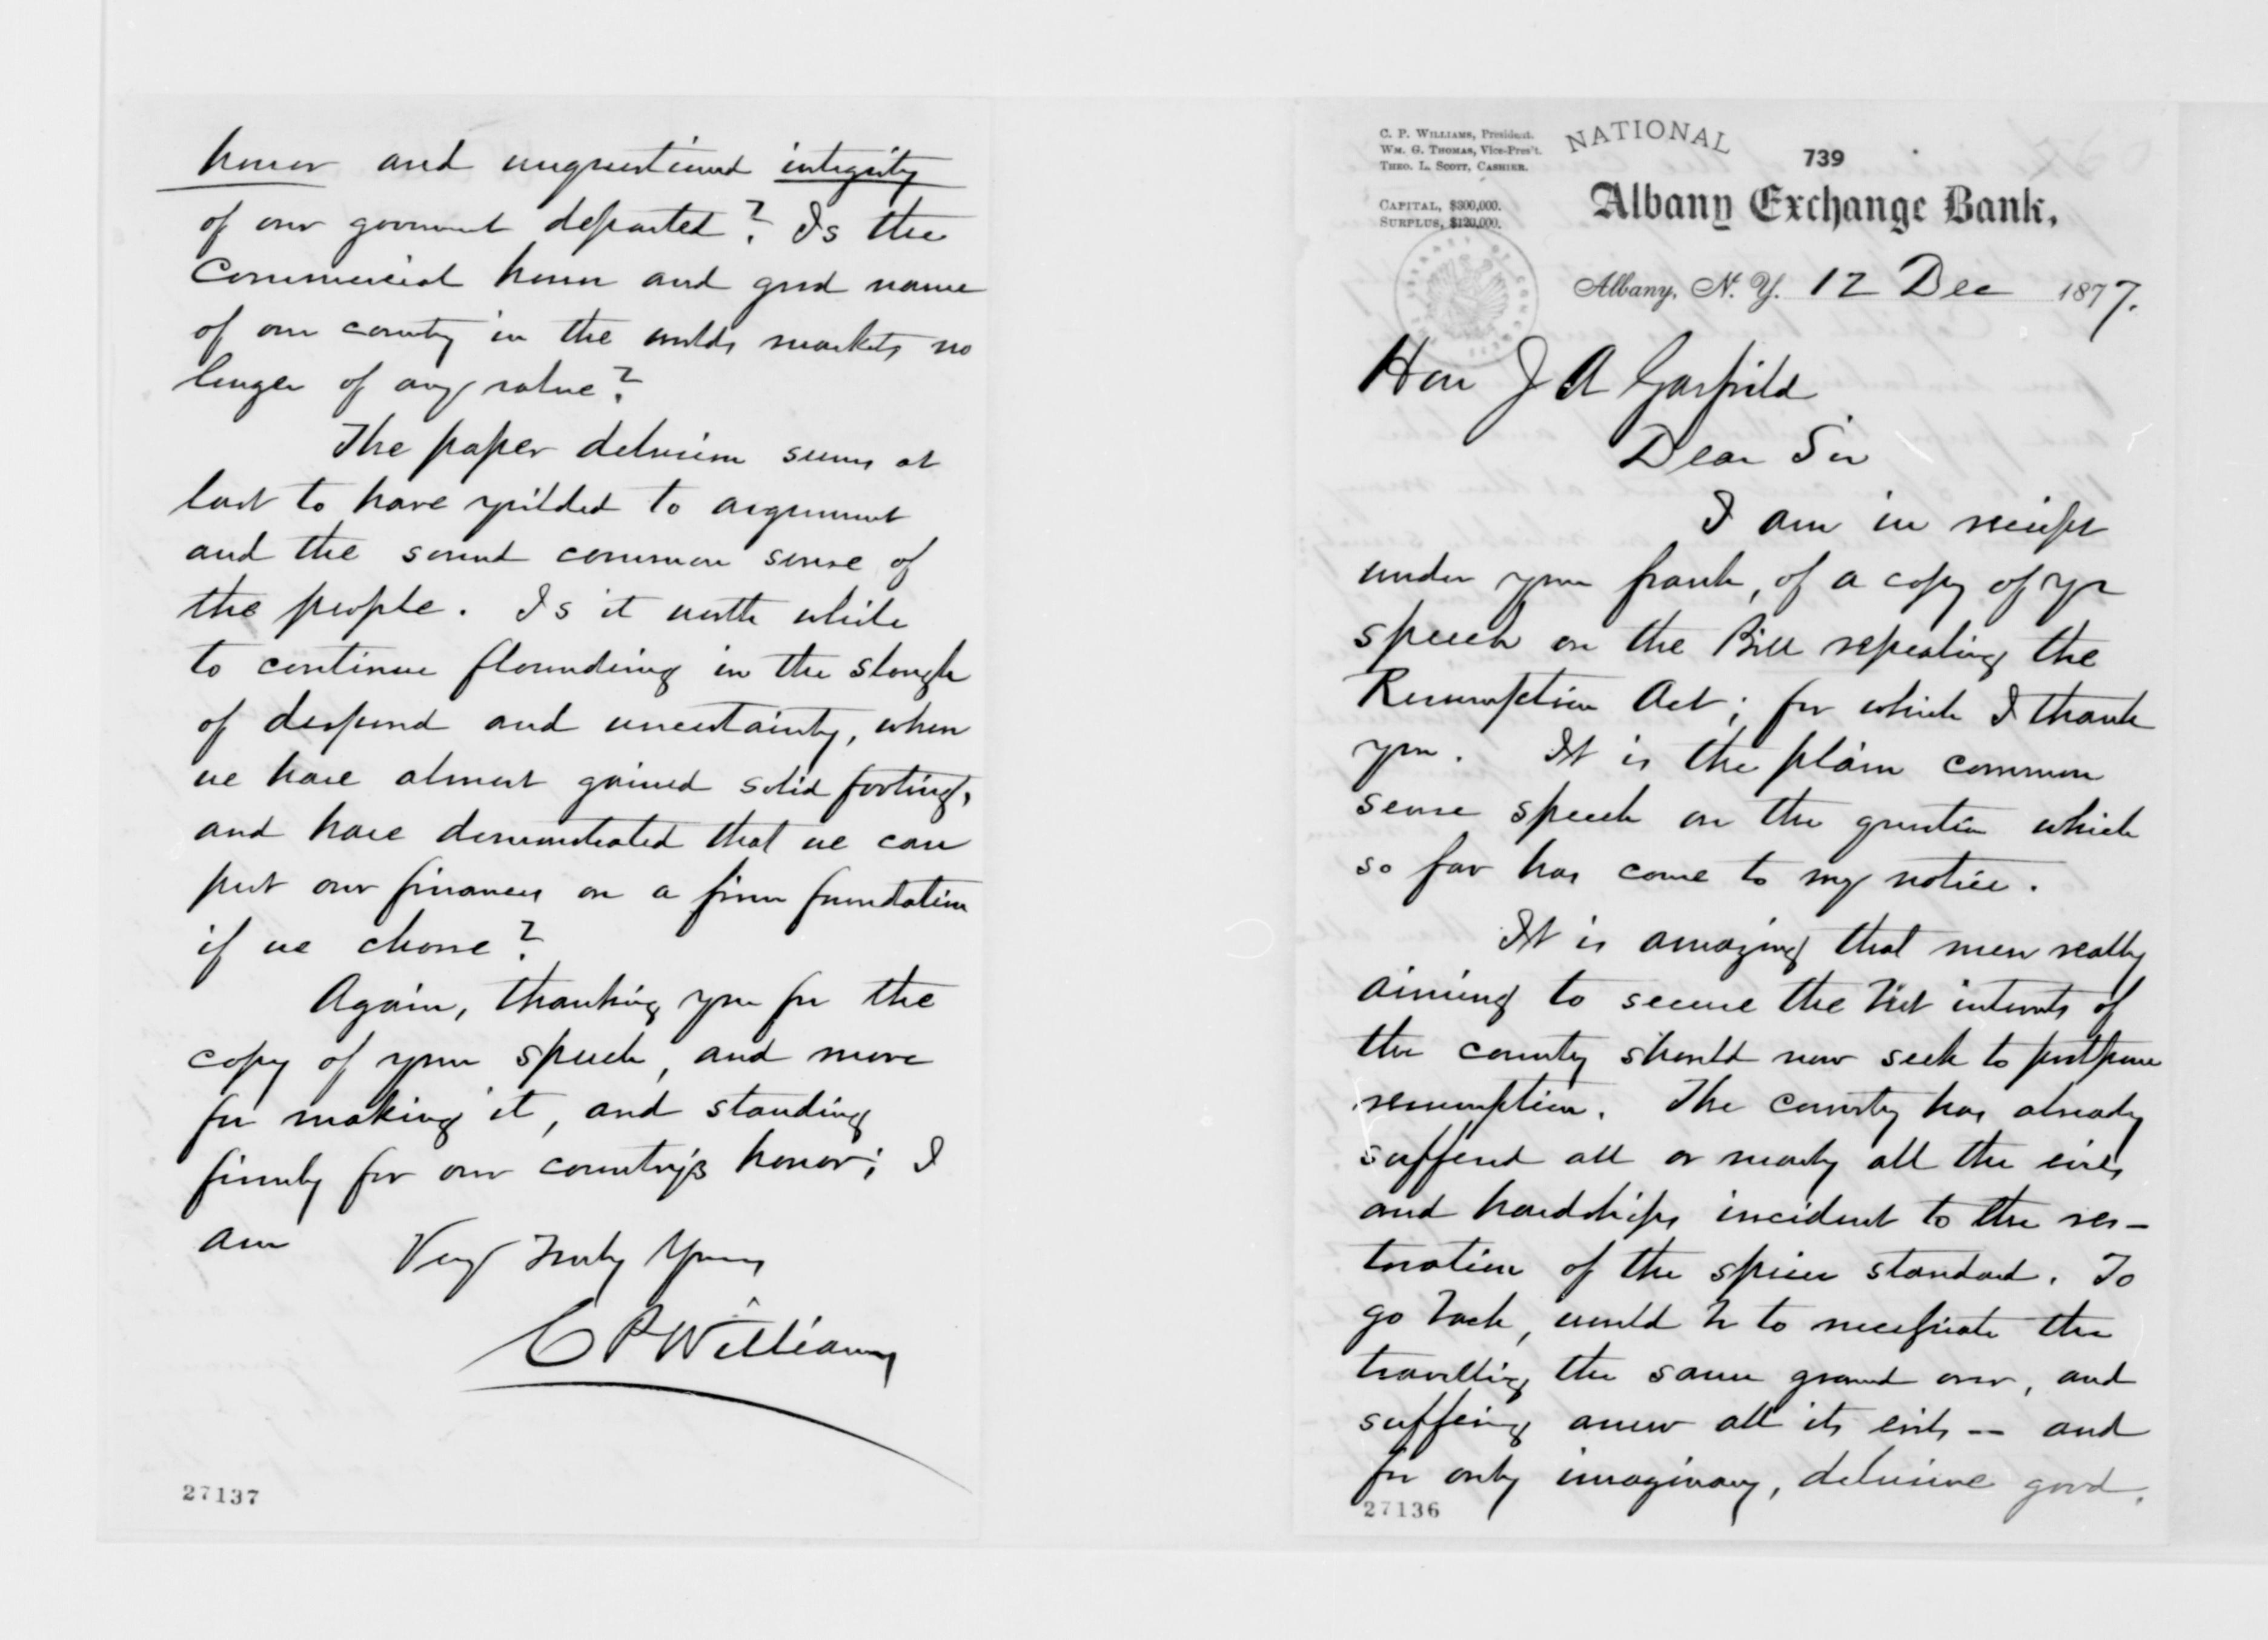 honor and unquestioned integrity
of our goverment departed? Is the
Commercial honor and good name
of our country in the worlds markets no
longer of any value?
The paper delusion seems at
last to have yeilded to argument
and the sound common sense of
the people. Is it worth while
to continue floundering in the slough
of despond and uncertainty, when
we have almost gained solid footing,
and have demonstrated that we can
put our finances on a firm foundation
if we choose?
Again, thanking you for the
copy of your speech, and more
for making it, and standing
firmly for our country's honor; I
am Very Truly Yours
C P Williams
27137
C. P. WILLIAMS, President.
WM. G. THOMAS, Vice-Pres't.
THEO. L. SCOTT, CASHIER.
CAPITAL, $300,000.
SURPLUS, $120,000.
NATIONAL
739
Albany Exchange Bank,
Albany, N. Y. 12 Dec 1877.
Hon J A Garfield
Dear Sir
I am in receipt
under your frank, of a copy of yr
speech on the Bill repealing the
Resumption Act; for which I thank
you. It is the plain common
sense speech on the question which
so far has come to my notice.
It is amazing that men really
aiming to secure the best interests of
the country should now seek to postpone
resumption. The country has already
suffered all or nearly all the evils
and hardships incident to the res-
toration of the specie standard. To
go back, would be to necessitate the
travelling the same ground over, and
suffering anew all its evils -- and
for only imaginary, delusive good.
27136